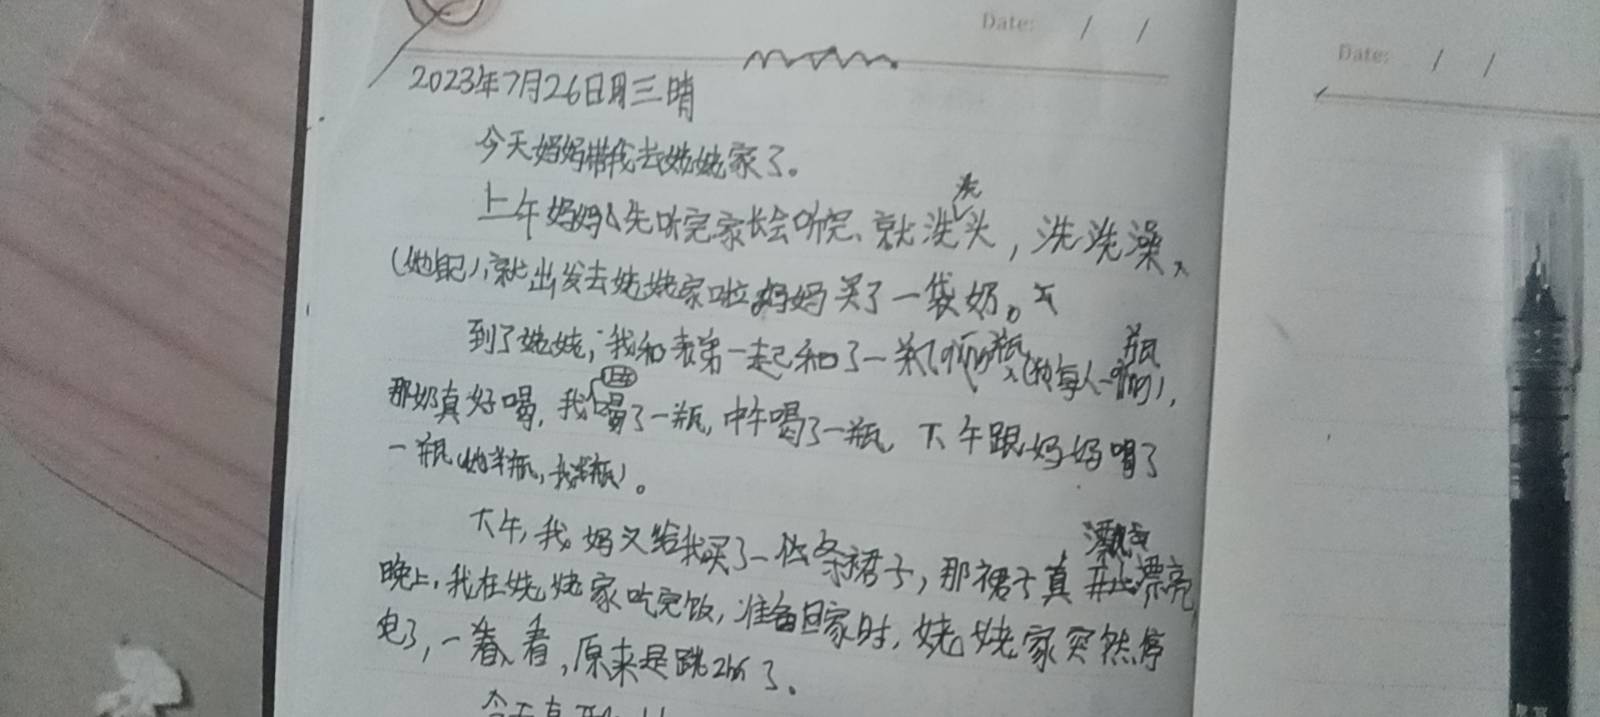 Date: / /
Date: / /
2023年7月26日 三 晴
今天妈妈带我去姥姥家了。
上午妈妈先听完家长会听完、就洗洗头，洗洗澡、
(她自己)，就出发去姥姥家啦妈妈买了一袋奶。
到了姥姥，我和表弟一起和了一瓶(每人一瓶)，
那奶真好喝，我喝了一瓶，中午喝了一瓶，下午跟妈妈喝了
一瓶(她半瓶，我半瓶)。
下午，我妈又给我买了一条裙子，那裙子真漂亮
晚上，我在姥姥家吃完饭，准备回家时，姥姥家突然停
电了，一看，原来是跳了。
今天真